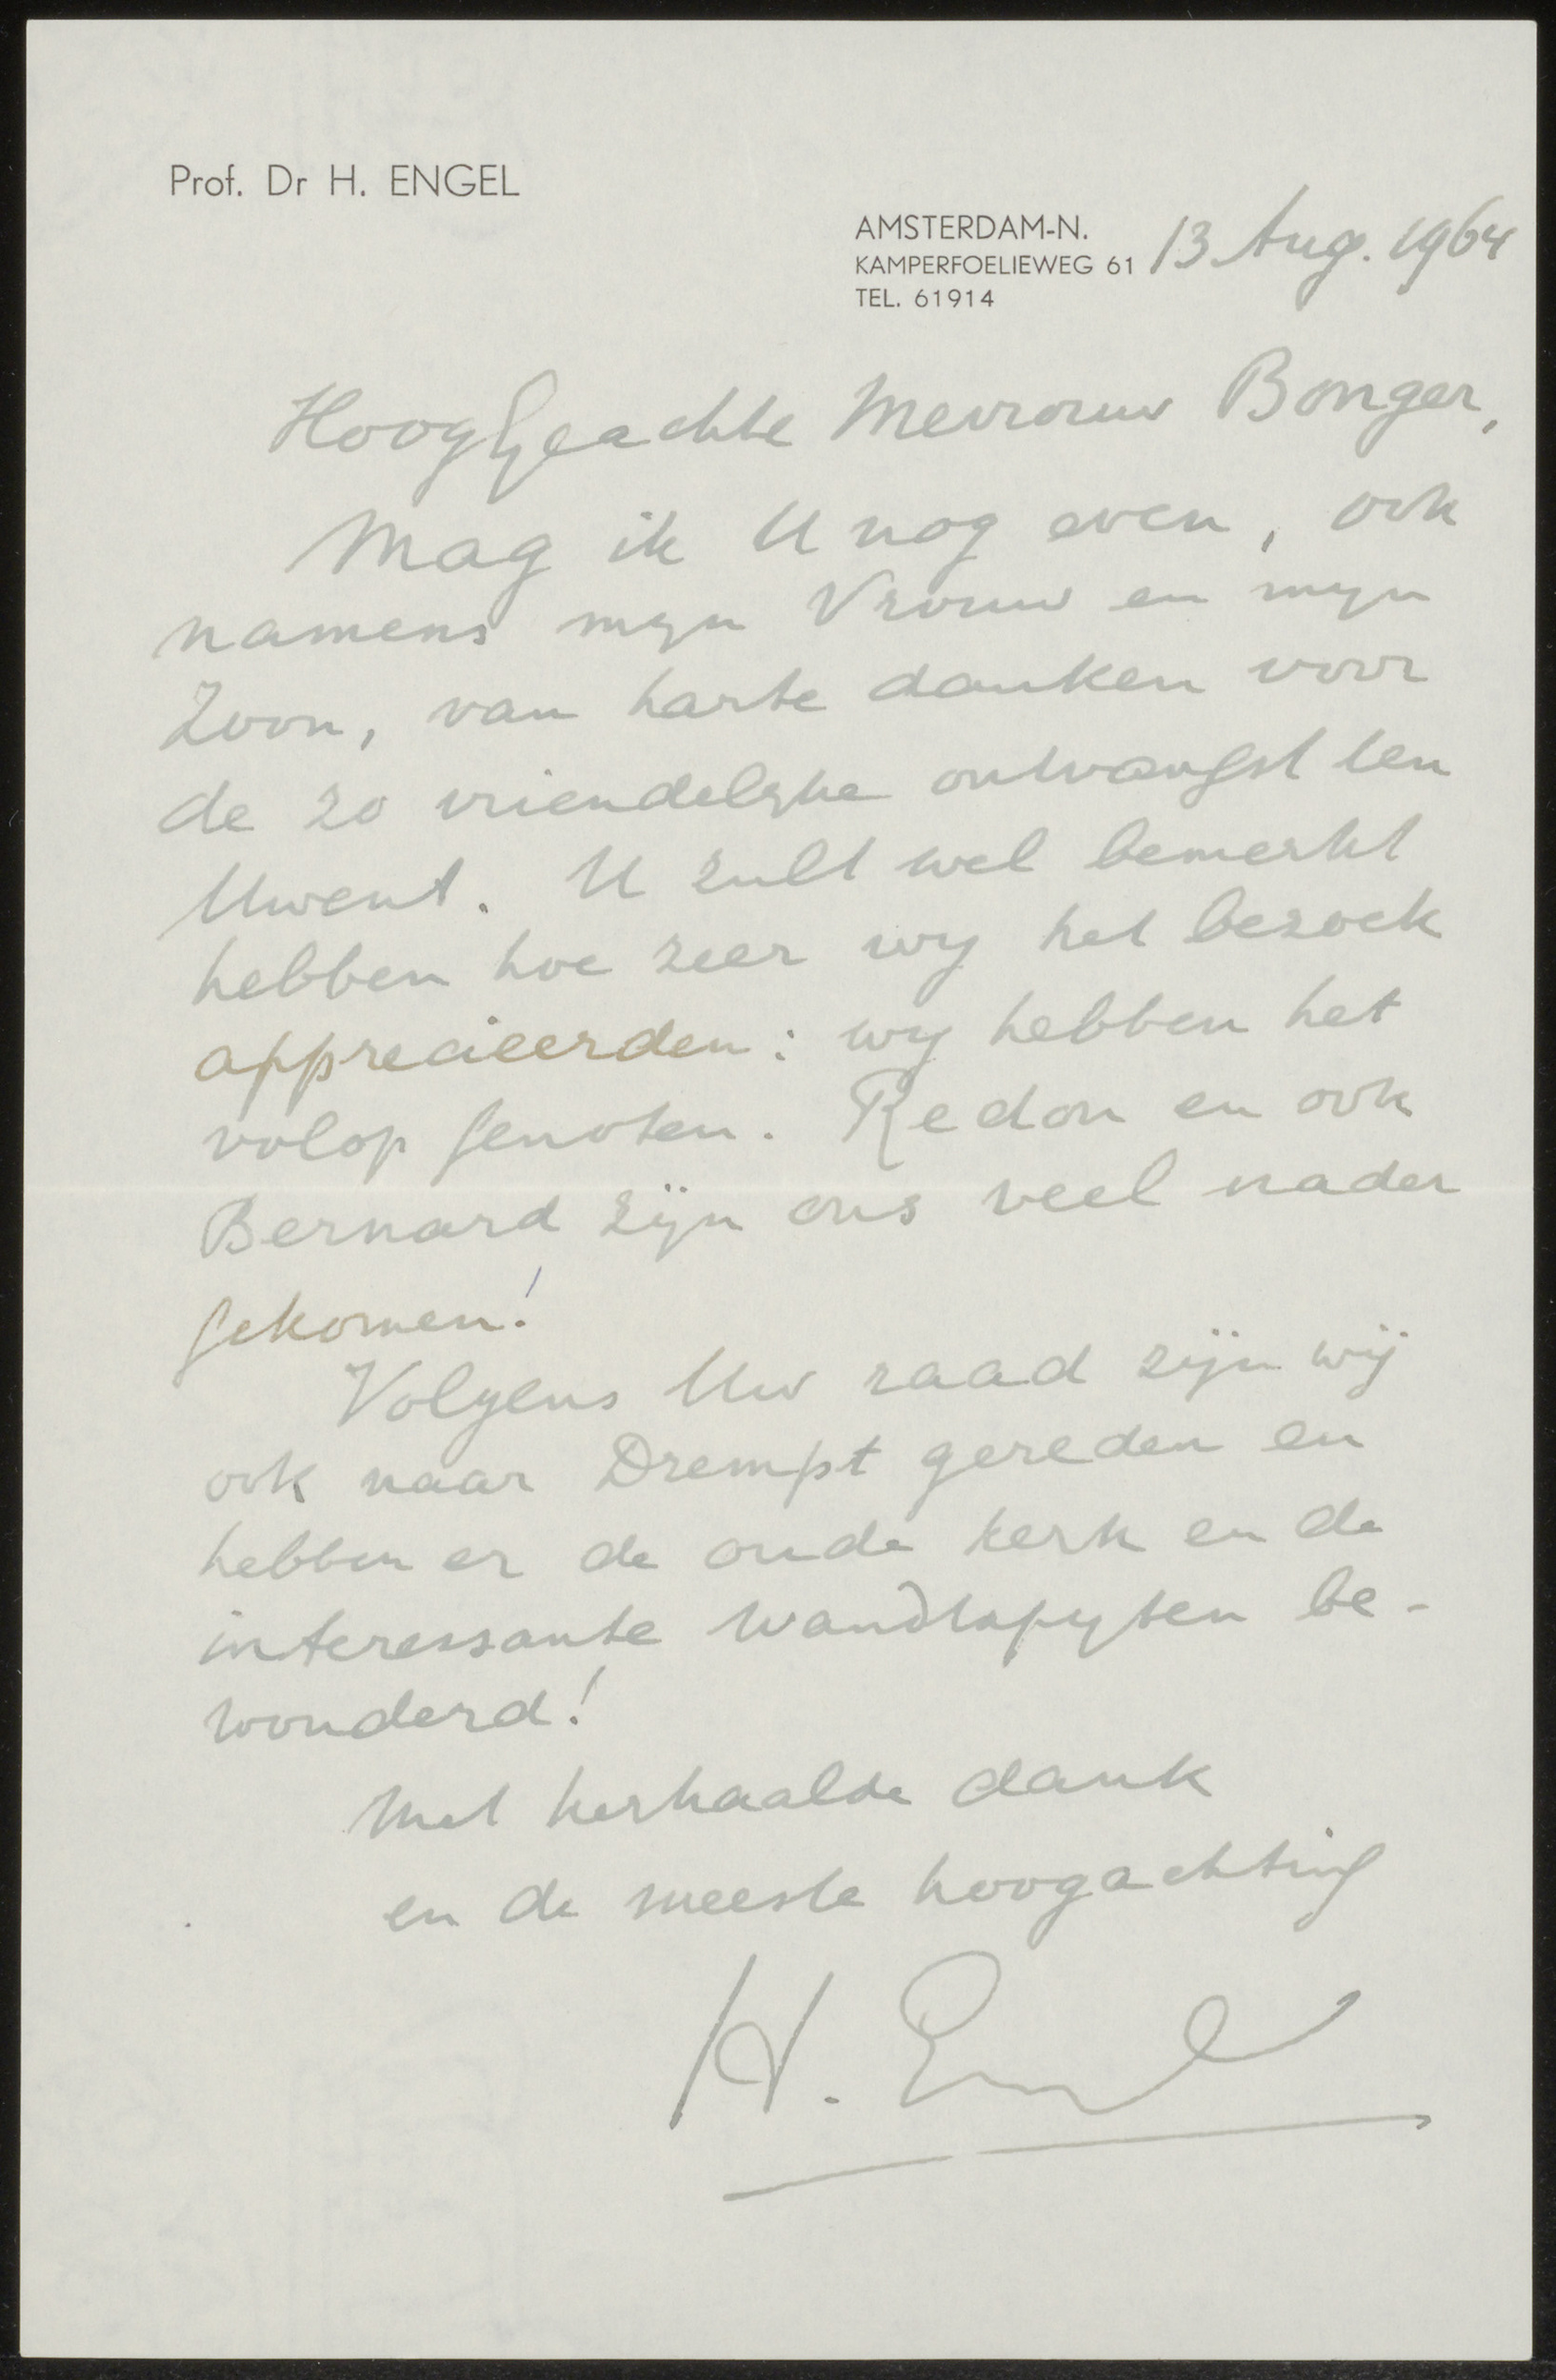 Prof. Dr H. ENGEL
AMSTERDAM-N.
KAMPERFOELIEWEG 61 13 Aug. 1964
TEL. 61914
HoogGeachte Mevrouw Bonger,
Mag ik U nog even, ook
namens myn Vrouw en myn
Zoon, van harte danken voor
de zo vriendelyke ontvangst ten
Uwent. U zult wel bemerkt
hebben hoe zeer wy het bezoek
apprecieerden: wy hebben het
volop genoten. Redon en ook
Bernard zijn ons veel nader
gekomen!
Volgens Uw raad zijn wij
ook naar Drempt gereden en
hebben er de oude kerk en de
interessante wandtapyten be-
wonderd!
Met herhaalde dank
en de meeste hoogachting
H. Engel